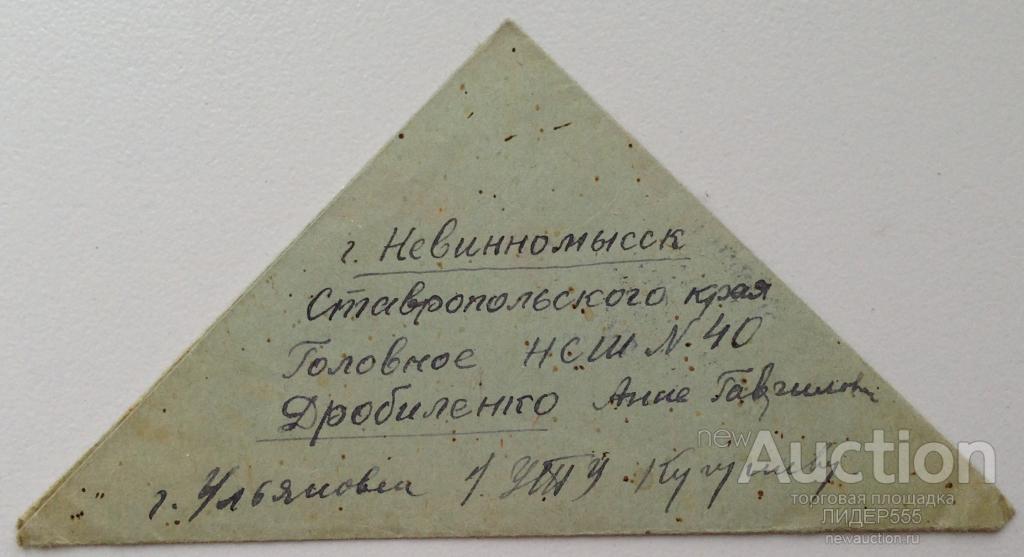 г. Невинномысск
Ставропольского края
Головное НСШ N. 40
Дробиленко Анне Гавриловн
г. Ульяновск 1 УТУ
newAuction
торговая площадка
ЛИДЕР555
newauction.ru